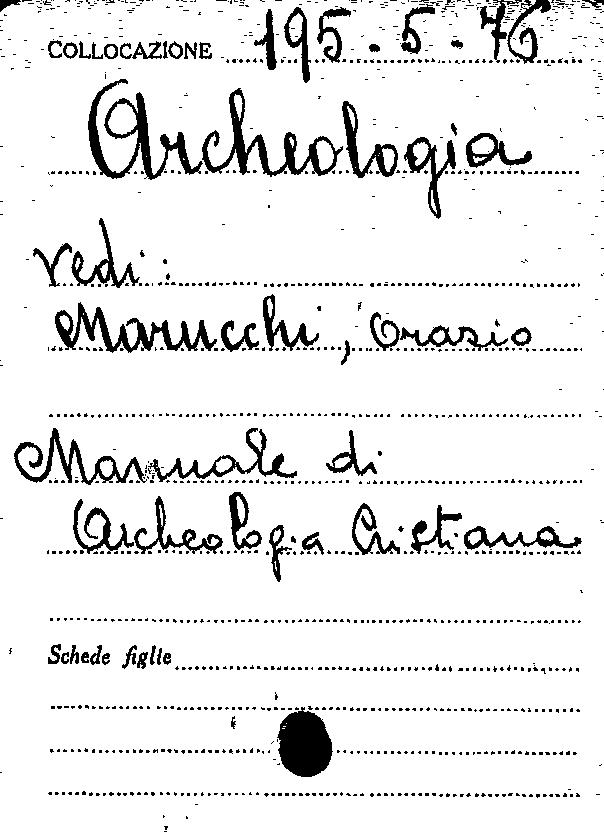 COLLOCAZIONE 195-5-76
Archeologia
Vedi:
Marucchi, Orazio
Manuale di
Archeologia Cristiana
Schede figlie